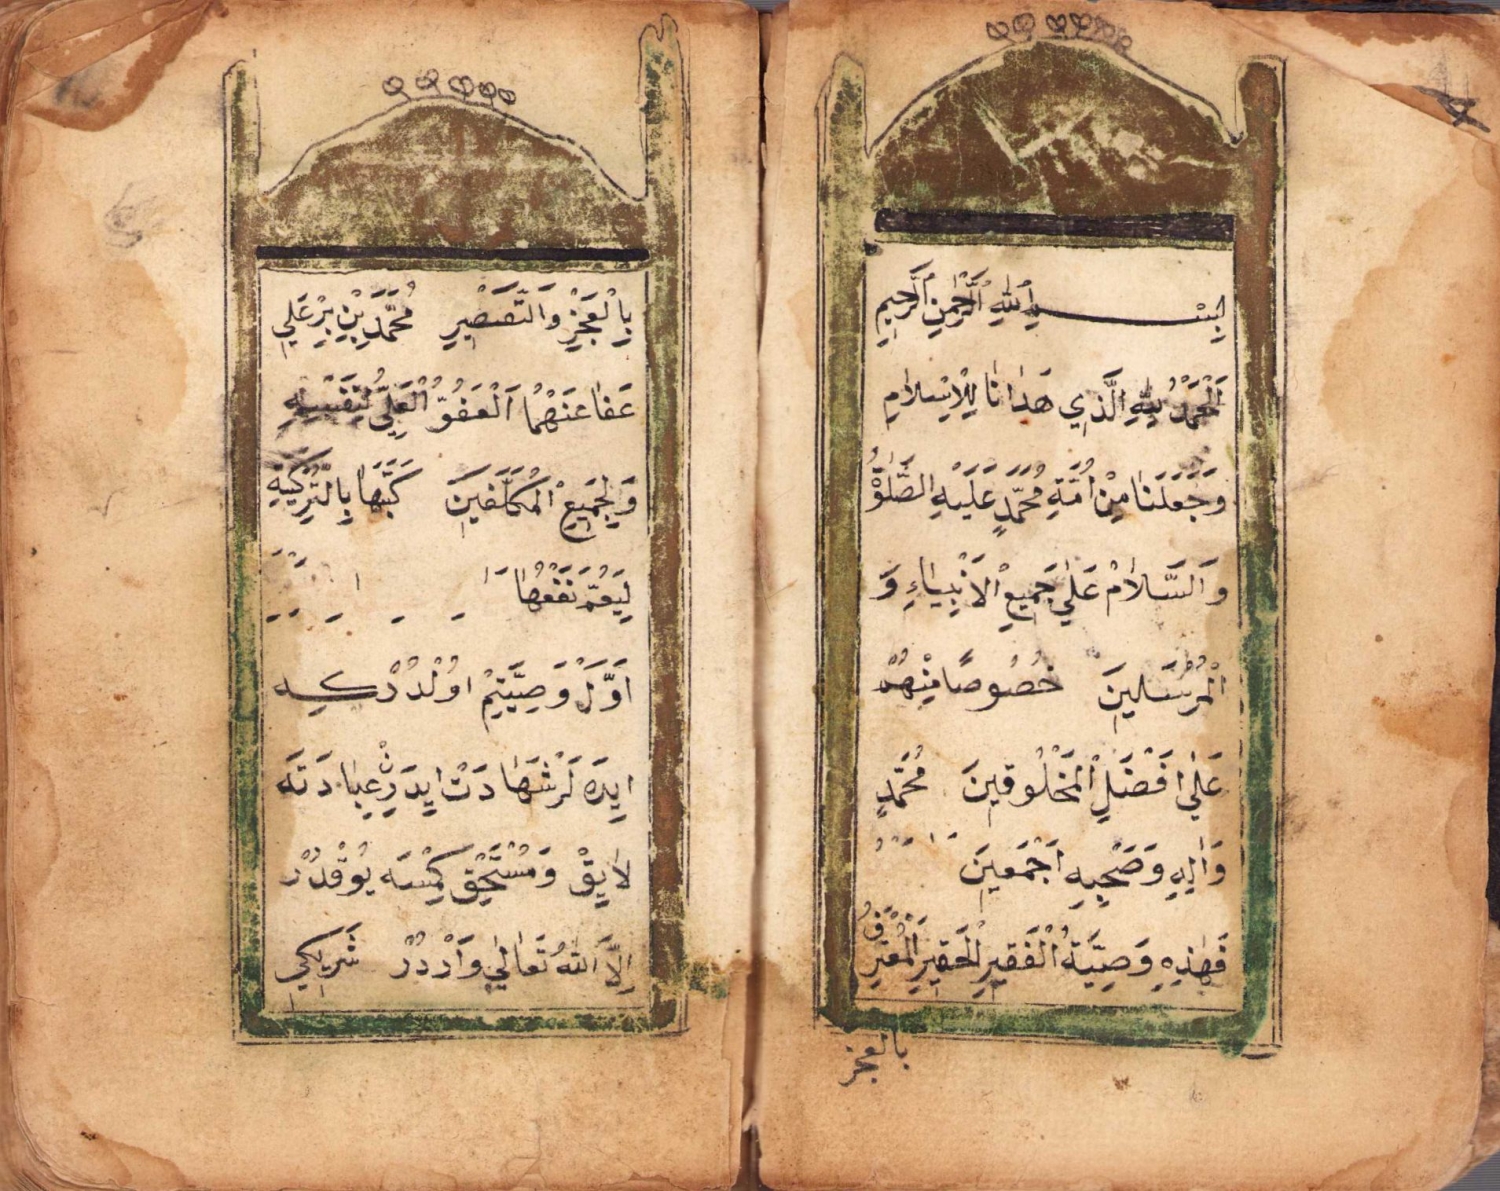 بِسْــــــمِ اللّٰهِ الرَّحْمٰنِ الرَّحِيمِ
اَلْحَمْدُ لِلّٰهِ الَّذِي هَدَانَا لِلْاِسْلَامِ
وَجَعَلَنَا مِنْ اُمَّةِ مُحَمَّدٍ عَلَيْهِ الصَّلٰوةُ
وَالسَّلَامُ عَلٰي جَمِيعِ الْاَنْبِيَاءِ وَ
الْمُرْسَلِينَ خُصُوصًا مِنْهُمْ
عَلٰي اَفْضَلِ الْمَخْلُوقِينَ مُحَمَّدٍ
وَاٰلِهِ وَصَحْبِهِ اَجْمَعِينَ
فَهٰذِهِ وَصِيَّةُ الْفَقِيرِ الْحَقِيرِ الْمُعْتَرِفُ
بالعجز
بِالْعَجْزِ وَالتَّقْصِيرِ مُحَمَّدِ بْنِ بِيرْ عَلِي
عَفَا عَنْهُمَا اَلْعَفُوُّ الْعَلِيُّ لِنَفْسِهِ
وَلِجَمِيعِ الْمُكَلَّفِينَ كَتَبَهَا بِالتُّرْكِيَّةِ
لِيَعُمَّ نَفْعُهَا
اَوَّلْ وَصِيَّتِمْ اوُلْدُرْكِه
ايدَه لَرْ شَهَادَتْ ايدَرِنْ عِبَادَتَه
لَايِقْ وَمُسْتَحِقْ كِمْسَه يُوقْدُرْ
اِلَّا اللّٰهُ تَعَالٰي وَارْدُرْ شَرِيكِي